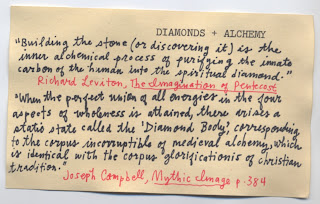 DIAMONDS + ALCHEMY
"Building the stone (or discovering it) is the
inner alchemical process of purifying the innate
carbon of the human into the spiritual diamond."
Richard Leviton, The Imagination of Pentecost
"When the perfect union of all energies in the four
aspects of wholeness is attained, there arises a
static state called the 'Diamond Body', corresponding
to the corpus incorruptible of medieval alchemy, which
is identical with the corpus glorificationis of Christian
tradition."
Joseph Campbell, Mythic Image p. 384